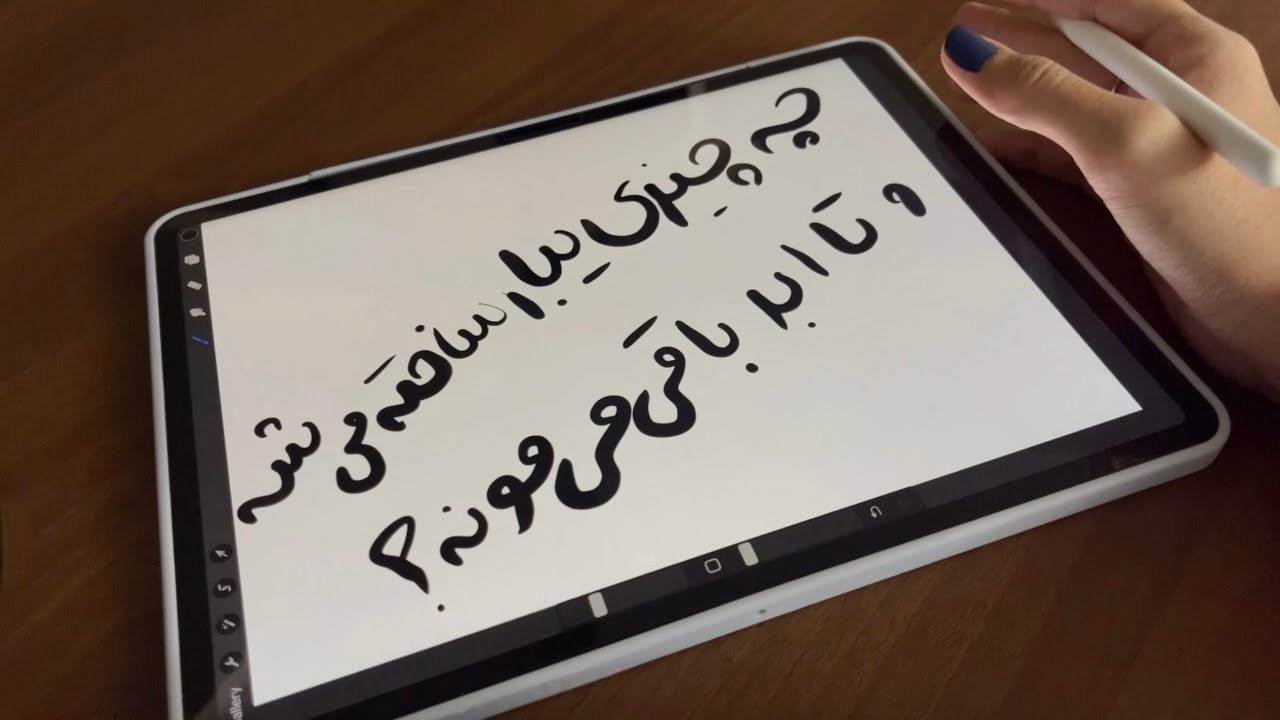 چه چیزی یبار ساخته می شه
و تا ابد باقی می مونه؟
allery